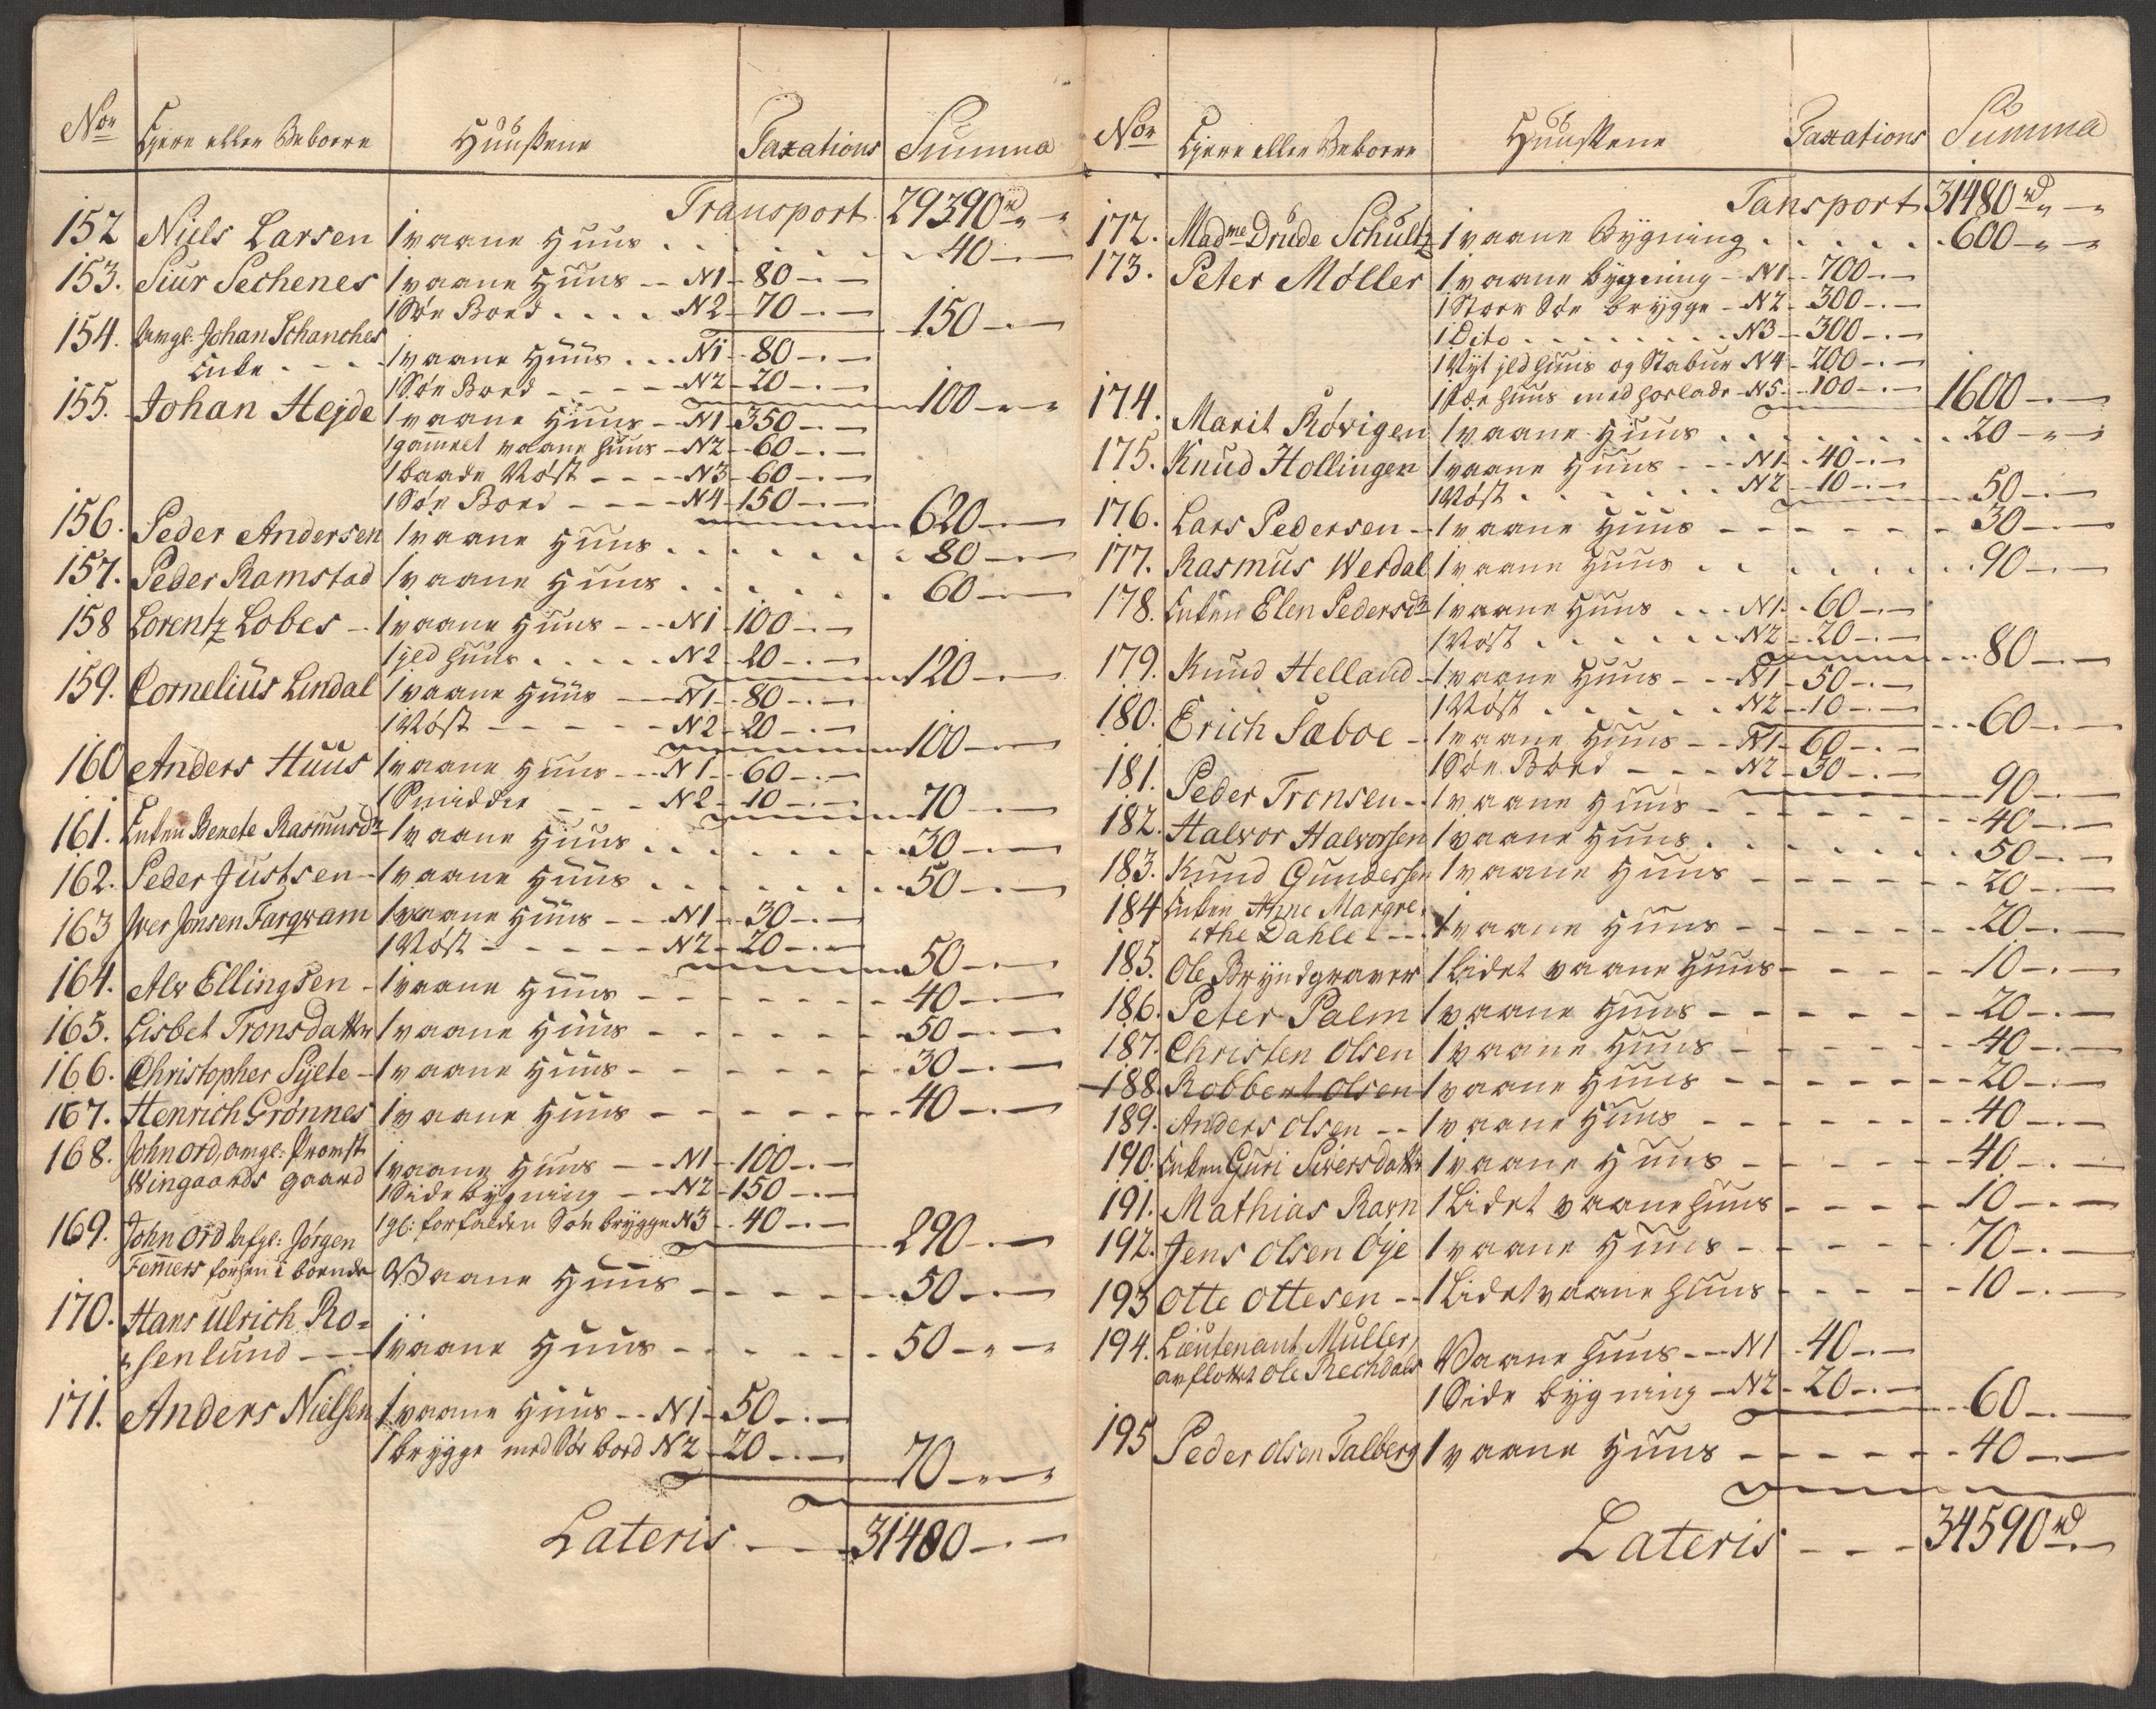 Nor Ejere eller Beboere Huußene Taxations Summa
Transport. 29390 rd " "
152 Niels Larsen 1 vaane Huus 40
153. Siur Sechenes 1 vaane Huus N1 80
1 Søe Boed N2 70 150
154. Johan Schanches
Enke 1 vaane Huus N1 80
1 Søe Boed N2 20 100
155. Johan Hejde 1 vaane Huus N1 350
1 gammelt vaane huus N2 60
1 baade Nøst N3 60
1 Søe Boed N4 150 620
156. Peder Andersen 1 vaane Huus 80
157. Peder Ramstad 1 vaane Huus 60
158 Lorentz Lobes 1 vaane Huus N1 100
1 jld huus N2 20 120
159. Cornelius Lindal 1 vaane Huus N1 80
1 Nøst N2 20 100
160 Anders Huus 1 vaane Huus N1 60
1 Smiddie N2 10 70
161. Enken Benete Rasmusdr 1 vaane Huus 30
162. Peder Justsen 1 vaane Huus 50
163 Iver Jonsen Farqvam 1 vaane Huus N1 30
1 Nøst N2 20 50
164. Alv Ellingsen 1 vaane Huus 40
165. Lisbet Tronsdatter 1 vaane Huus 50
166. Christopher Sylte 1 vaane Huus 30
167. Henrich Grønnes 1 vaane Huus 40
168. John Ord, angl: Promst
Wingaards gaard 1 vaane Huus N1 100
1 Side bygning N2 150
1 gl: forfalden Søe brygge N3 40 290
169. John Ord Jørgen
Femmers i boende Vaane Huus 50
170. Hans Ulrich Ro=
senlund 1 vaane Huus 50
171. Anders Nielsen 1 vaane Huus N1 50
1 brygge med Søe boed N2 20 70
Lateris 31480
Nor Ejere eller Beboere Huußene Taxations Summa
Tansport 31480 rd " "
172. Madme Drude Schultz 1 vaane Bygning 600
173. Peter Møller 1 vaane bygning N1 700
1 Stoer Søe brygge N2 300
1 Dito N3 300
1 Nyt jld huus og Stabur N4 200
1 Fæe huus med horlade N5 100 1600
174. Marit Røvigen 1 vaane Huus 20
175. Knud Hollingen 1 vaane Huus N1 40
1 Nøst N2 10 50
176. Lars Pedersen 1 vaane Huus 30
177. Rasmus Werdal 1 vaane Huus 90
178. Enken Elen Pedersdr 1 vaane Huus N1 60
1 Nøst N2 20 80
179. Knud Helland 1 vaane Huus N1 50
1 Nøst N2 10 60
180. Erich Sæboe 1 vaane Huus N1 60
1 Søe Boed N2 30 90
181. Peder Tronsen 1 vaane Huus 40
182. Halvor Halvorsen 1 vaane Huus 50
183. Knud Gundersen 1 vaane Huus 20
184 Enken Anne Margre,
the Dahle 1 vaane Huus 20
185. Ole Bryndgraver 1 Lidet vaane Huus 10
186. Peter Palm 1 vaane Huus 20
187. Christen Olsen 1 vaane Huus 40
188. Robbert Olsen 1 vaane Huus 20
189. Anders Olsen 1 vaane Huus 40
190. Enken Guri Siversdatter 1 vaane Huus 40
191. Mathias Ravn 1 Lidet vaane huus 10
192. Jens Olsen Øje 1 vaane Huus 70
193 Otte Ottesen 1 Lidet vaane huus 10
194. Lieutenant Muller,
Ole Rechdals Vaane huus N1 40
1 Side bygning N2 20 60
195 Peder Olsen Talberg 1 vaane Huus 40
Lateris 34590 rd